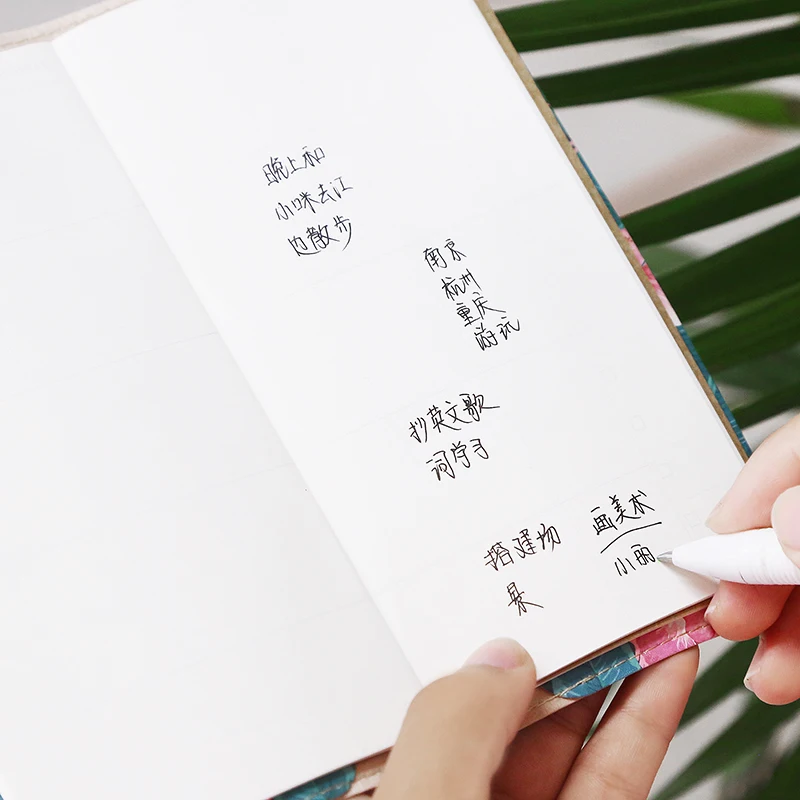 晚上和
小咪去江
边散步
南京
杭州
重庆
游玩
抄英文歌
词学习
搭建场
景
画美术
小丽